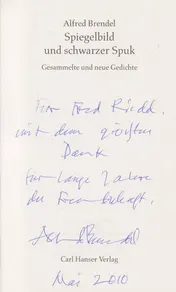 Alfred Brendel
Spiegelbild
und schwarzer Spuk
Gesammelte und neue Gedichte
Für Fred
mit dem größten
Dank
für lange Jahre
der Freundschaft.
Alfred Brendel
Carl Hanser Verlag
Mai 2010